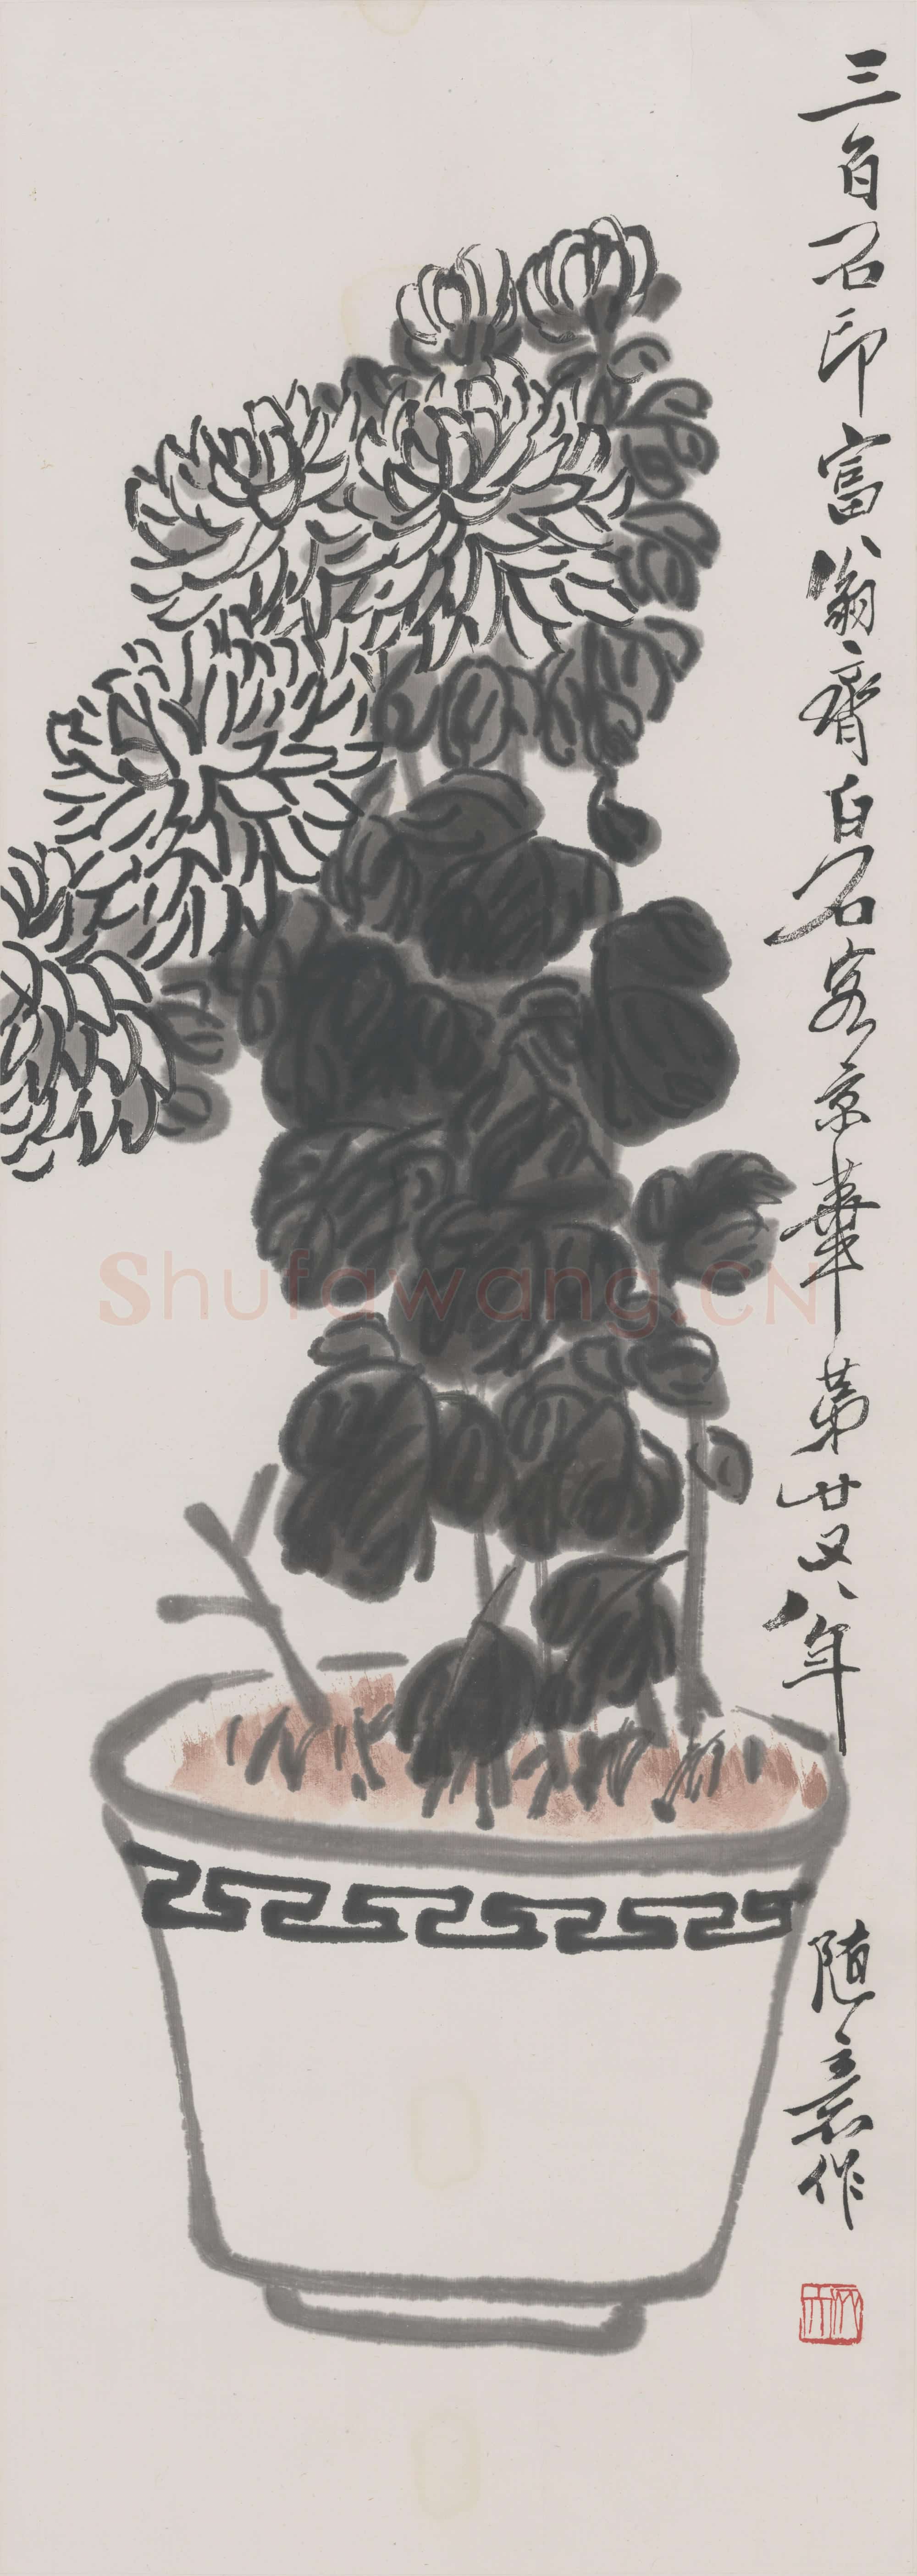 三百石印富翁齊白石客京華第廿又八年
隨意作
Shufawang.CN